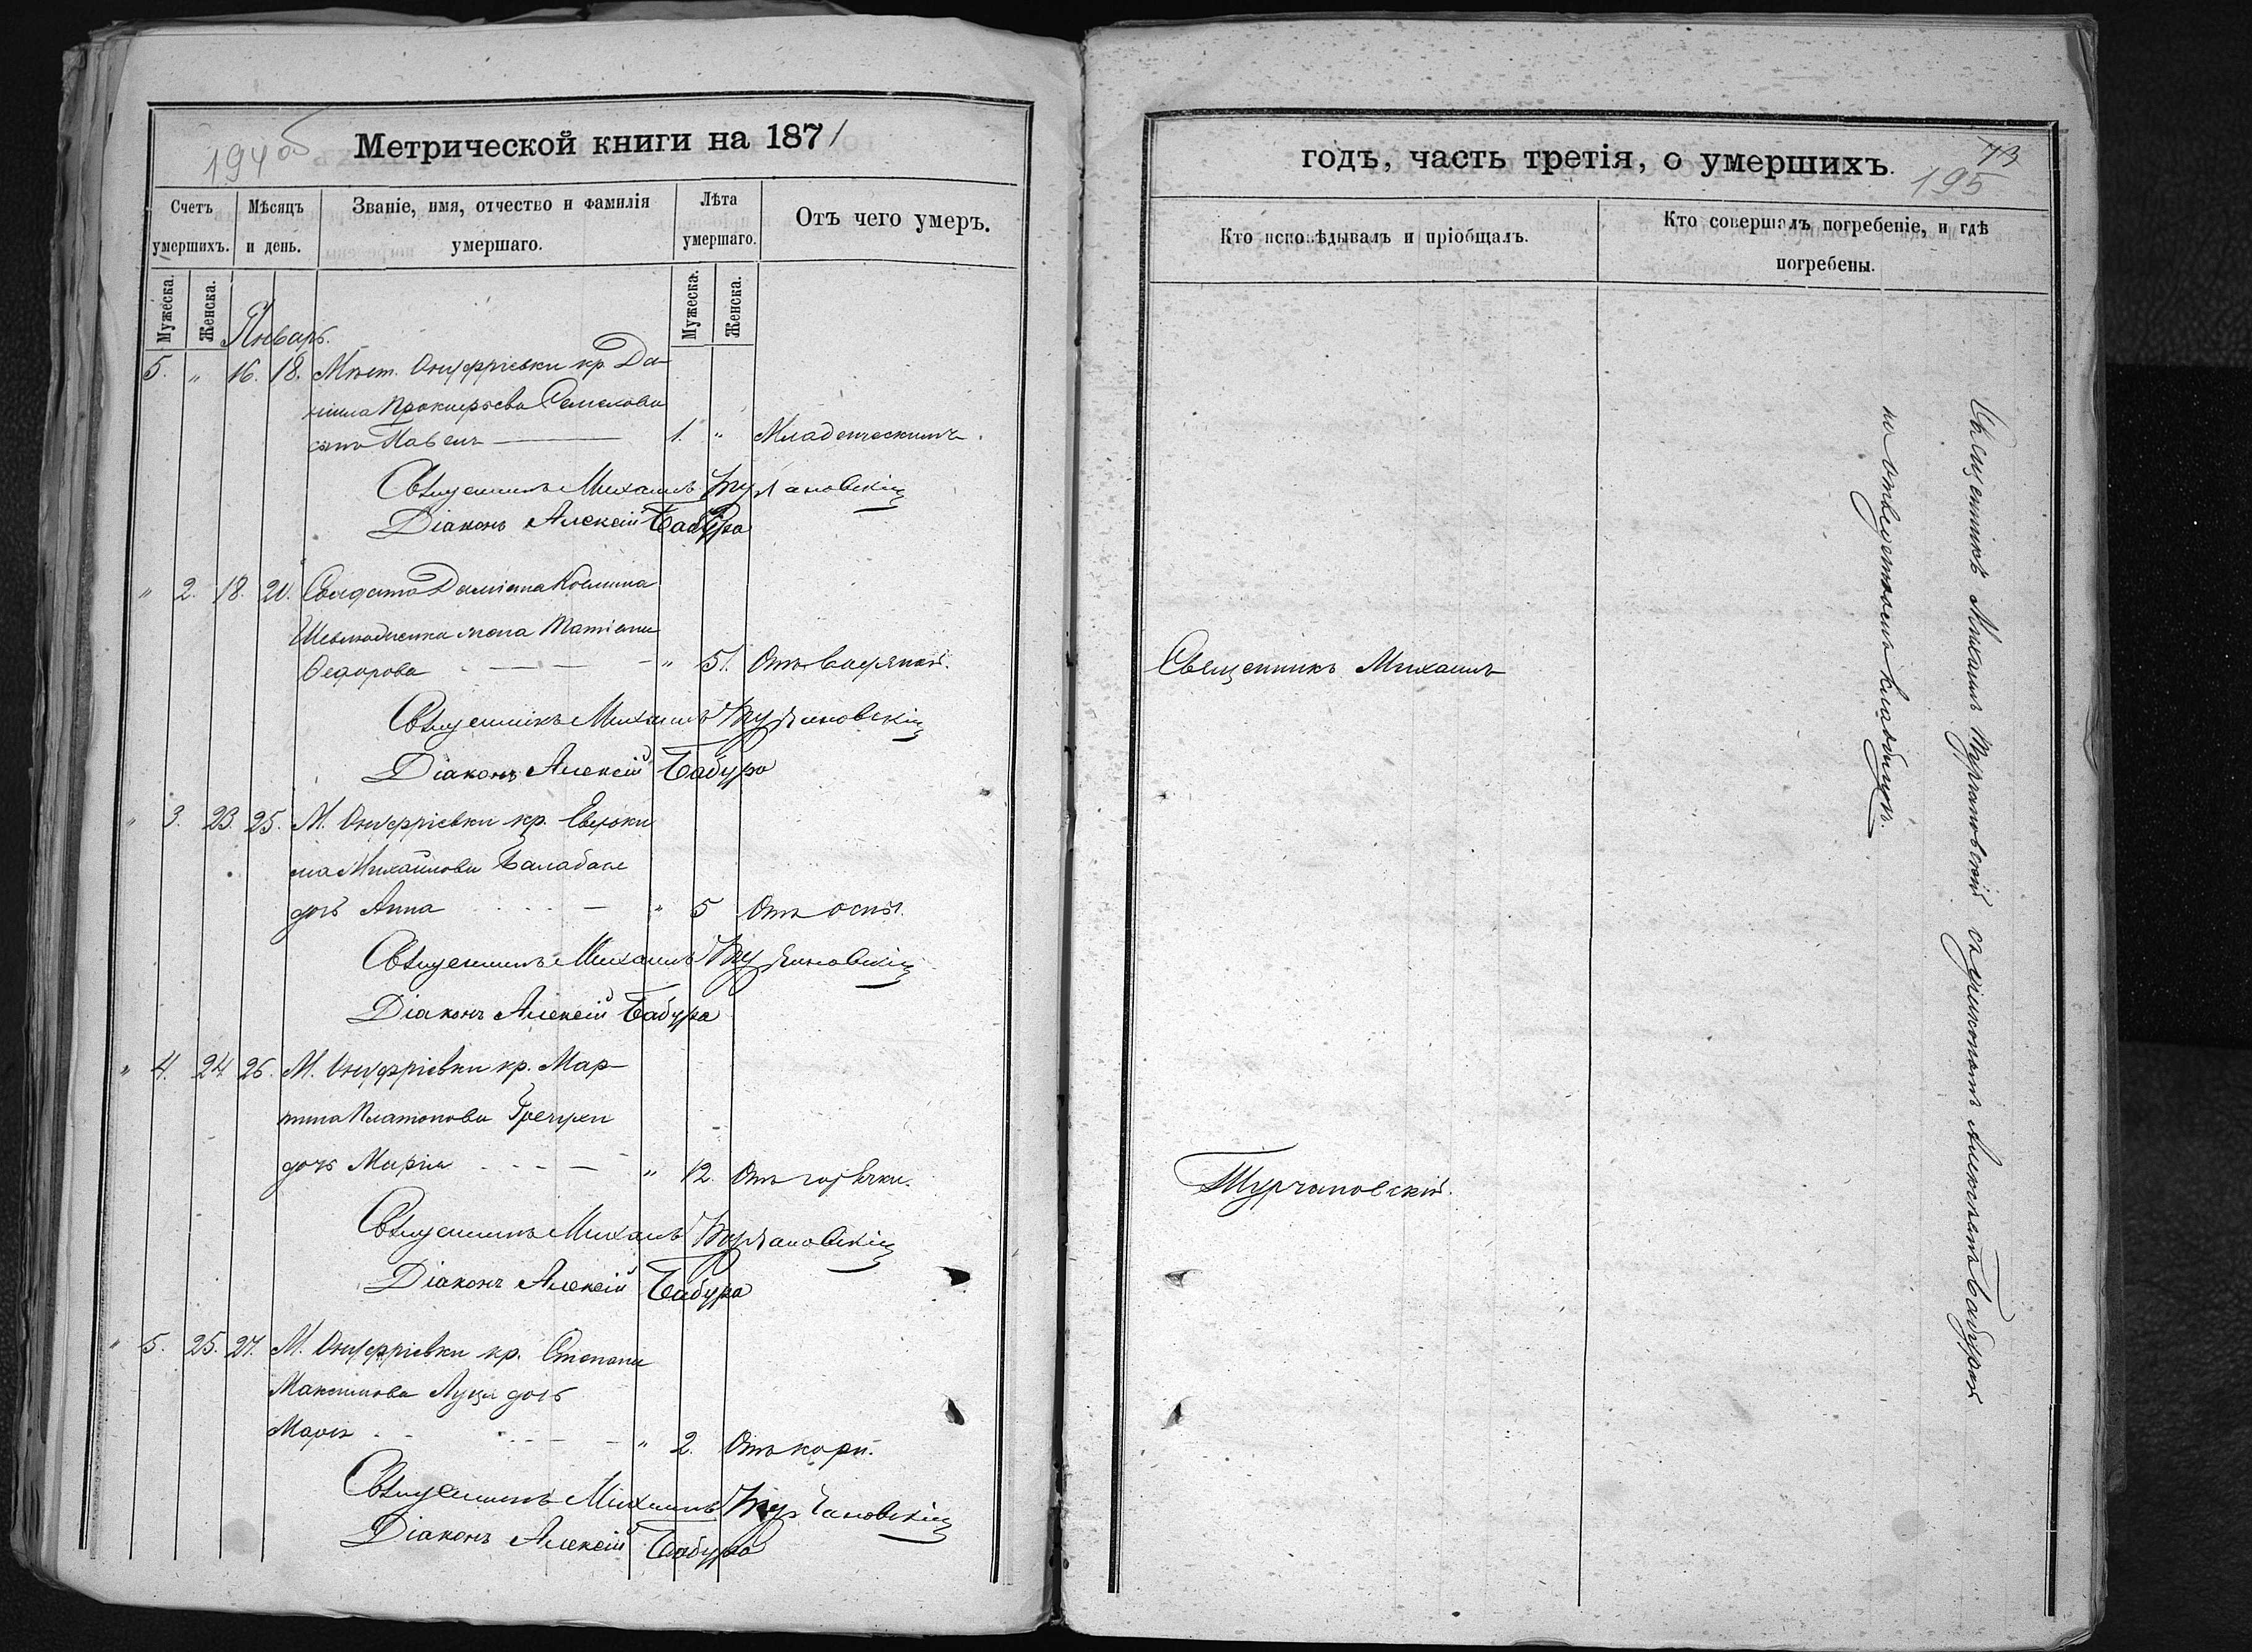 194 об
Метрической книги на 1871
Счетъ умершихъ.
Мѣсяцъ и день.
Званіе, имя, отчество и фамилія умершаго.
Лѣта умершаго.
Отъ чего умеръ.
Мужеска.
Женска.
Мужеска.
Женска.
Январь.
5. " 16. 18. Мѣст. Онуфріевки кр. Да-
ніила Прокопьева
сынъ Павелъ — 1. " Младенческимъ.
Священникъ Михаилъ Турчановскій
Діаконъ Алексій Бабура
" 2. 18. 20. Солдата Даміана Косьмина
жена Татіана
Ѳедорова — " 51. Отъ
Священникъ Михаилъ Турчановскій
Діаконъ Алексій Бабура
" 3. 23. 25. М. Онуфріевки кр. Евдоки
ма Михайлова Балабана
дочь Анна — " 5 Отъ оспы.
Священникъ Михаилъ Турчановскій
Діаконъ Алексій Бабура
" 4. 24 26. М. Онуфріевки кр. Мар-
тина Платонова
дочь Марія — " 12. Отъ горячки.
Священникъ Михаилъ Турчановскій
Діаконъ Алексій Бабура
" 5. 25. 27. М. Онуфріевки кр. Стефана
Максимова Луца дочь
Марѳа — " 2. Отъ кори.
Священникъ Михаилъ Турчановскій
Діаконъ Алексій Бабура
годъ, часть третія, о умершихъ.
73
195
Кто исповѣдывалъ и пріобщалъ.
Кто совершалъ погребеніе, и гдѣ
погребены.
Священникъ Михаилъ
Турчановскій.
Священникъ Михаилъ Турчановскій съ діакономъ Алексіемъ Бабурой
на отведенномъ кладбищѣ.